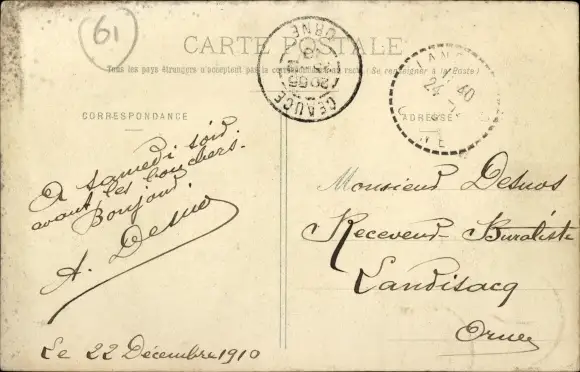 61
CARTE POSTALE
Tous les pays étrangers n'acceptent pas la correspondance au recto (Se renseigner à la Poste)
CORRESPONDANCE
ADRESSE
CEAUCÉ
ORNE
24
40
A samedi soir
avant les bouchers.
Bonjour.
A. Desnos
Le 22 Décembre 1910
Monsieur Desnos
Receveur Buraliste
Landisacq
Orne